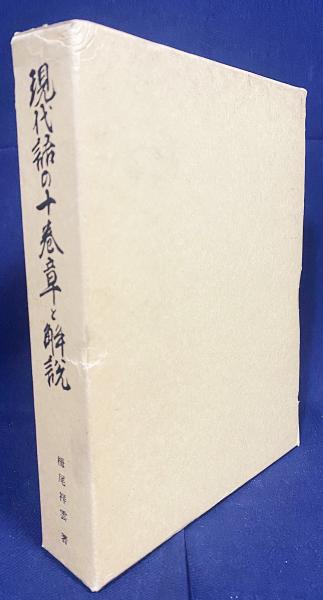 現代語の十巻章と解説
栂尾祥雲 著